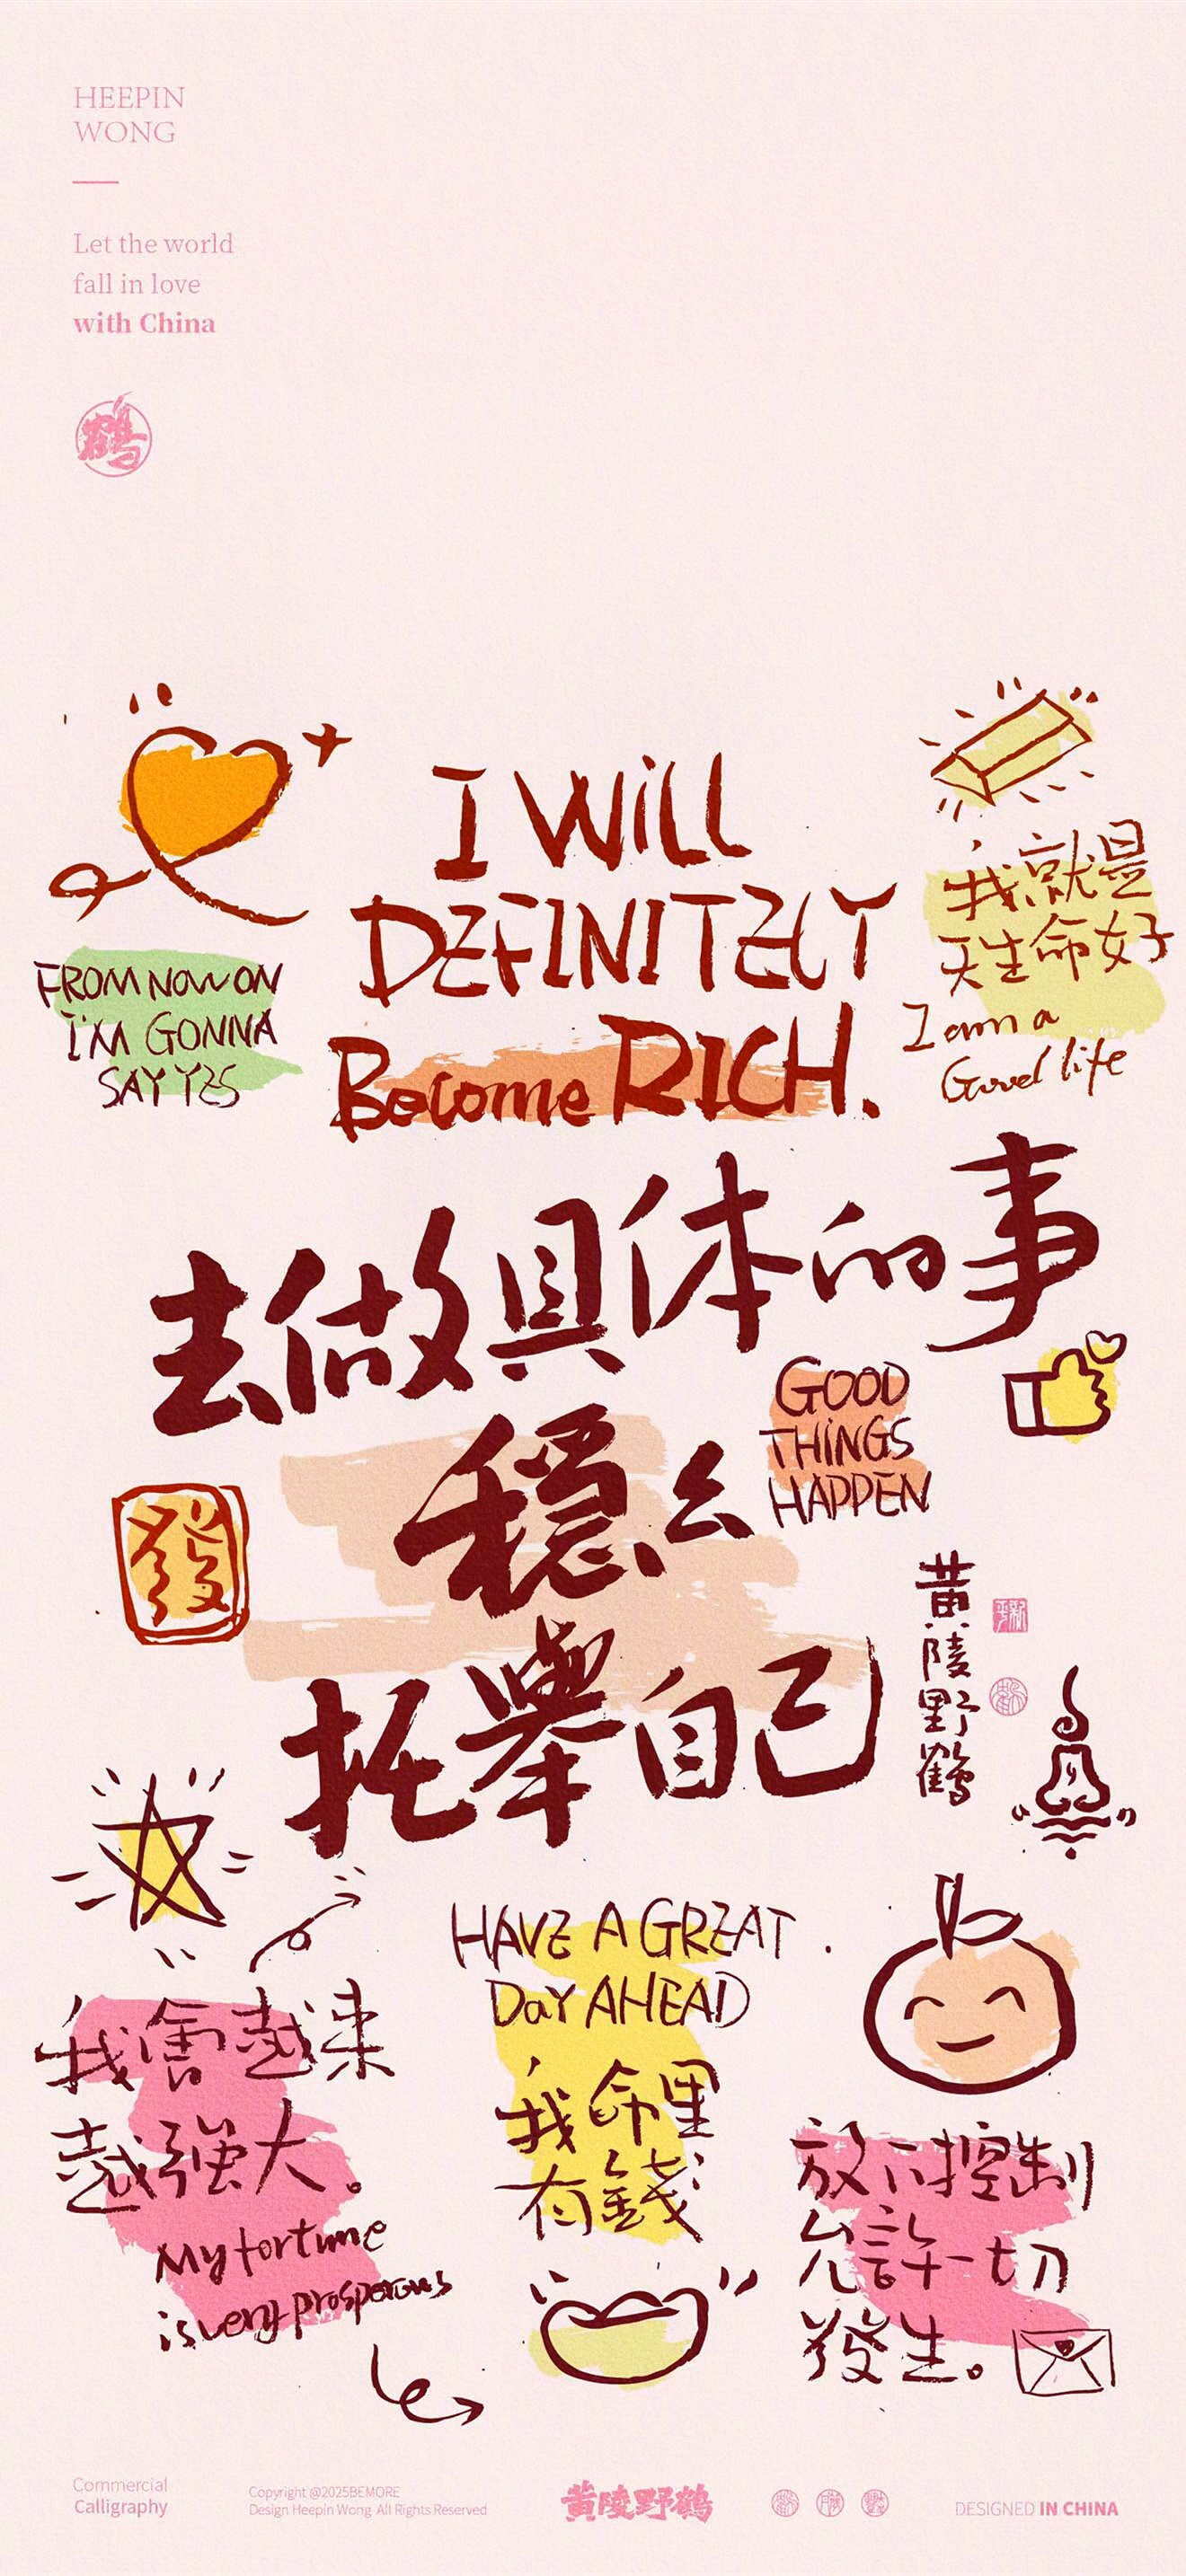 HEEPIN
WONG
Let the world
fall in love
with China
鶴
I WiLL
DEFINITELY
Become RICH.
FROM NOW ON
I'M GONNA
SAY YES
我就是
天生命好
I am a
Good life
去做具体的事
穩么
托舉自己
GOOD
THiNGS
HAPPEN
發
黄陵野鶴
我會越来
越強大。
My fortune
is very prosperous
HAVE A GREAT
DaY AHEAD
我命里
有錢
放下控制
允許一切
發生。
Commercial
Calligraphy
Copyright @2025BEMORE
Design Heepin Wong All Rights Reserved
黄陵野鶴
DESIGNED IN CHINA